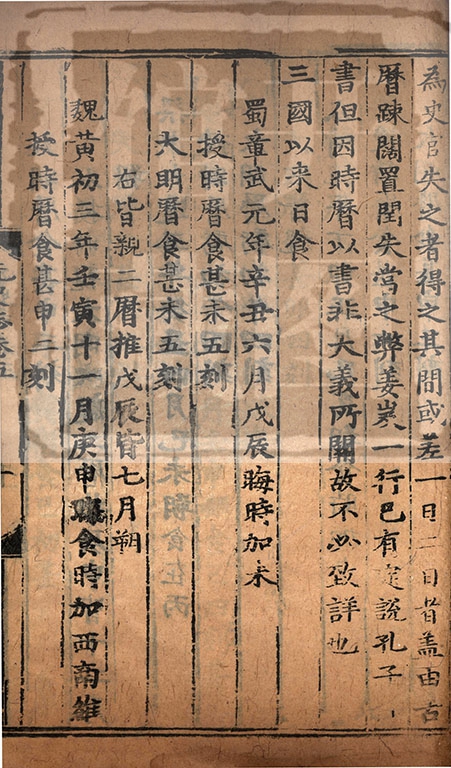 為史官失之者得之其間或差一日二日者盖由古
曆踈闊置閏失當之弊姜岌一行已有定說孔子
書但因時曆以書非大義所關故不必致詳也
三國以来日食
蜀章武元年辛丑六月戊辰晦時加未
授時曆食甚未五刻
大明曆食甚未五刻
右皆親二曆推戊辰皆七月朔
魏黃初三年壬寅十一月庚申晦食時加西南維
授時曆食甚申二刻